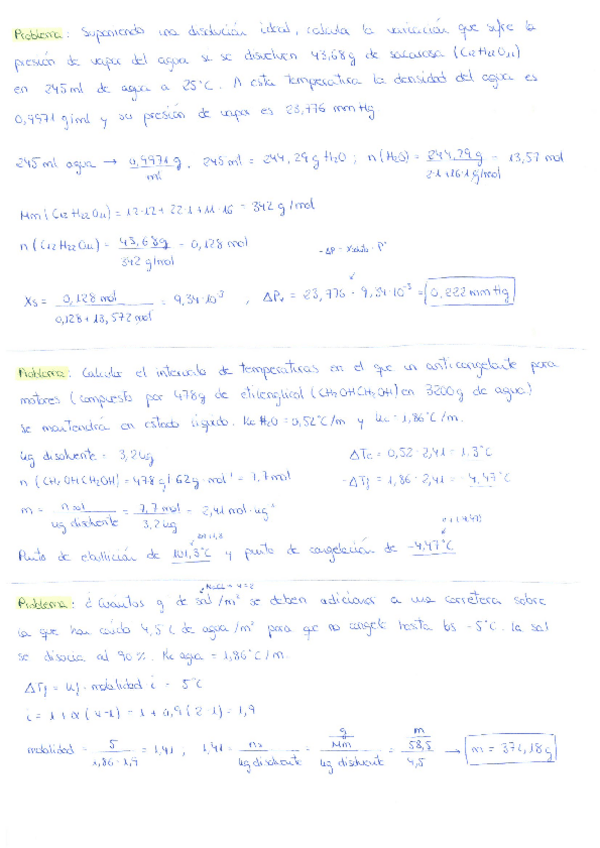 Problema: Suponiendo una disolución ideal, calcula la variación que sufre la
presión de vapor del agua si se disuelven 43,68g de sacarosa (C12H22O11)
en 245ml de agua a 25°C. A esta temperatura la densidad del agua es
0,9971 g/ml y su presión de vapor es 23,776 mmHg
245 ml agua → 0,9971 g / ml · 245 ml = 244,29 g H2O ; n(H2O) = 244,29 g / 2·1+16·1 g/mol = 13,57 mol
Mm(C12H22O11) = 12·12 + 22·1 + 11·16 = 342 g/mol
n(C12H22O11) = 43,68g / 342 g/mol = 0,128 mol
-ΔP = Xsoluto · P°
Xs = 0,128 mol / 0,128 + 13,572 mol = 9,34·10⁻³ , ΔPv = 23,776 · 9,34·10⁻³ = 0,222 mmHg
Problema: Calcular el intervalo de temperaturas en el que un anticongelante para
motores (compuesto por 478g de etilenglicol (CH2OHCH2OH) en 3200g de agua)
se mantendrá en estado líquido. Ke H2O = 0,52°C/m y Kc = 1,86°C/m.
kg disolvente = 3,2kg
ΔTe = 0,52 · 2,41 = 1,3°C
n (CH2OHCH2OH) = 478g / 62g·mol⁻¹ = 7,7mol
-ΔTf = 1,86 · 2,41 = -4,47°C
m = n sol / kg disolvente = 7,7 mol / 3,2kg = 2,41 mol·kg⁻¹
Punto de ebullición de 101,3°C y punto de congelación de -4,47°C
Problema: ¿Cuántos g de sal/m² se deben adicionar a una carretera sobre
la que han caído 4,5 L de agua/m² para que no congele hasta los -5°C. La sal
se disocia al 90%. Kc agua = 1,86°C/m.
ΔTf = Kf · molalidad · i = 5°C
i = 1 + α(ν-1) = 1 + 0,9(2-1) = 1,9
molalidad = 5 / 1,86·1,9 = 1,41 ; 1,41 = ns / kg disolvente = g / Mm / kg disolvente = m / 58,5 / 4,5 → m = 371,18g